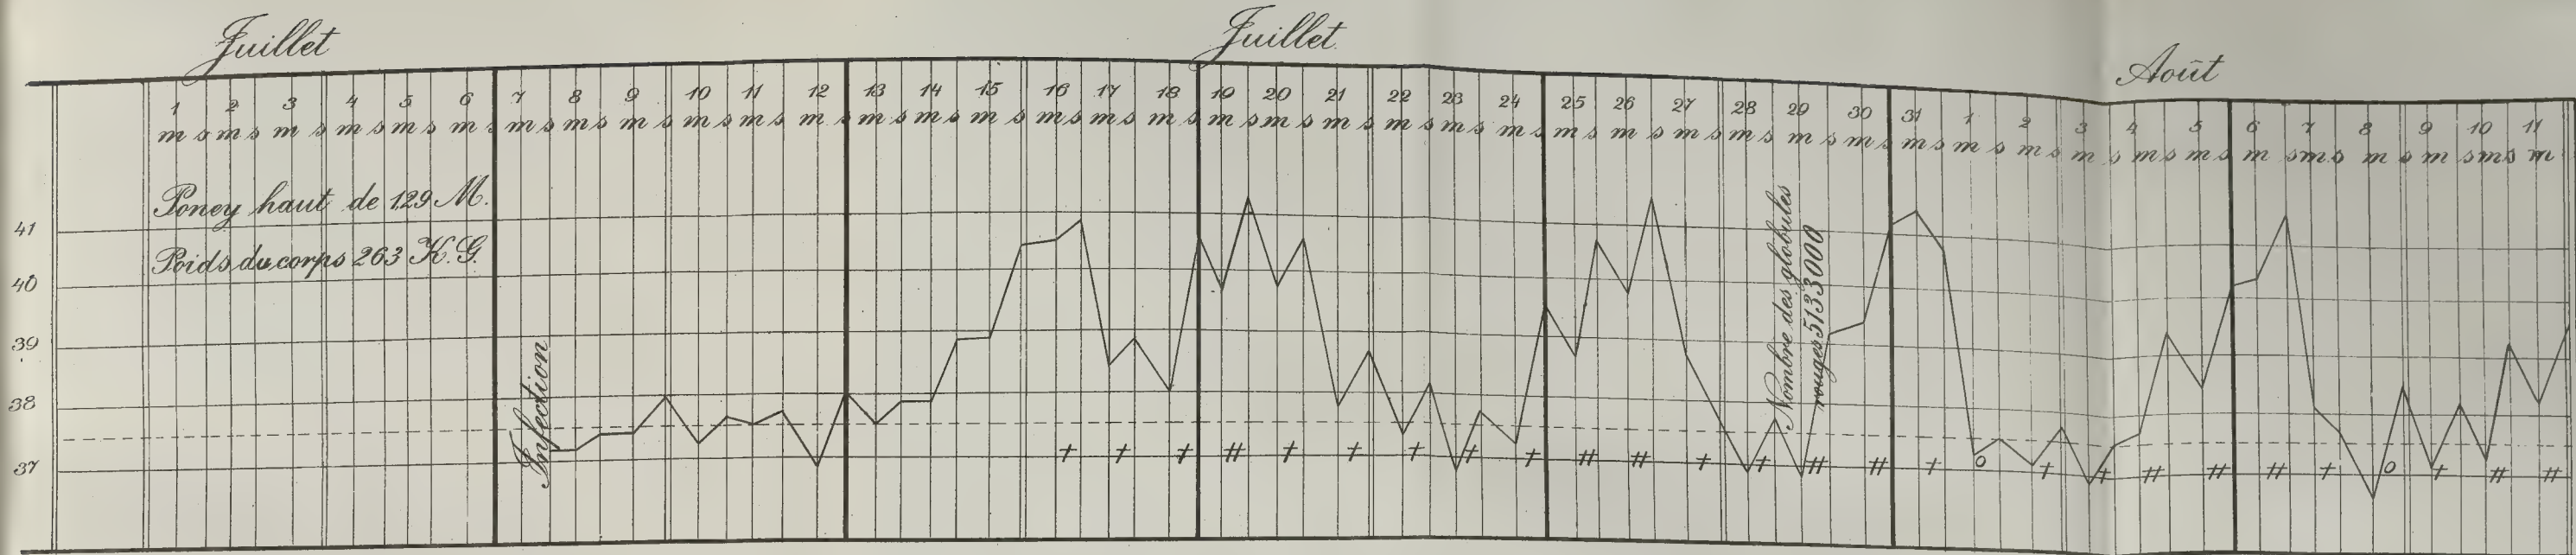 Juillet Juillet Août
1 2 3 4 5 6 7 8 9 10 11 12 13 14 15 16 17 18 19 20 21 22 23 24 25 26 27 28 29 30 31 1 2 3 4 5 6 7 8 9 10 11
m s m s m s m s m s m s m s m s m s m s m s m s m s m s m s m s m s m s m s m s m s m s m s m s m s m s m s m s m s m s m s m s m s m s m s m s m s m s m s m s m s m
Poney haut de 1.29 M.
Poids du corps 263 K.G.
41
40
39
38
37
Infection
Nombre des globules
rouges 5133000
+ + + # + + + + + # # + + # # + o + + # # # + o + # #